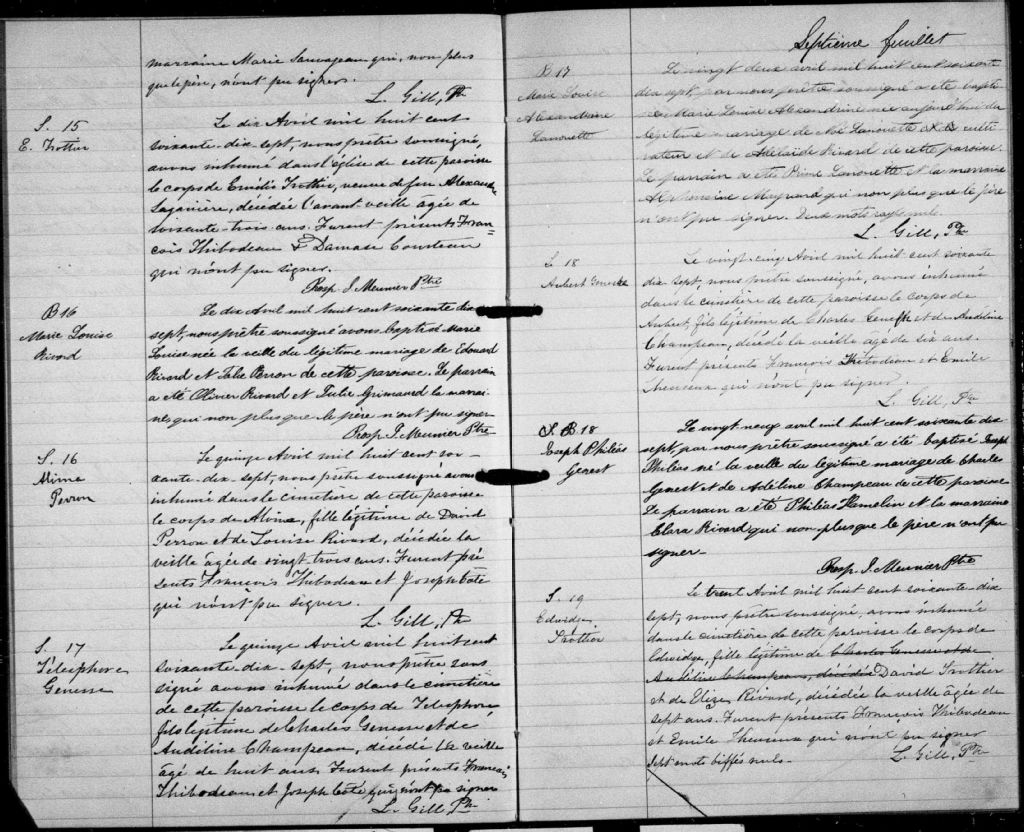 marraine Marie Sauvageau qui, non plus
que le père, n'ont pu signer.
L. Gill, Ptr
S. 15
E. Trottier
Le dix Avril mil huit cent
soixante-dix-sept, nous prêtre soussigné,
avons inhumé dans l'église de cette paroisse
le corps de Emélie Trottier, veuve de feu Alexandre
Laganière, décédée l'avant veille agée de
soixante-trois ans. Furent présents Fran-
çois Thibodeau & Damase Courteau
qui n'ont pu signer.
Prosp. J. Meunier Ptre
B 16
Marie Louise
Rivard
Le dix Avril mil huit cent soixante dix
sept, nous prêtre soussigné avons baptisé Marie
Louise née la veille du légitime mariage de Edouard
Rivard et Julie Perron de cette paroisse. Le parrain
a été Olivier Rivard et Julie Grimard la marrai-
ne, qui non plus que le père n'ont pu signer
Prosp. J. Meunier Ptre
S. 16
Alvina
Perron
Le quinze Avril mil huit cent soi-
xante-dix-sept, nous prêtre soussigné avons
inhumé dans le cimetière de cette paroisse
le corps de Alvina, fille légitime de David
Perron et de Louise Rivard, décédée la
veille âgée de vingt-trois ans. Furent pré
sents François Thibodeau et Joseph Coté
qui n'ont pu signer.
L. Gill, Ptr
S. 17
Télesphore
Genesse
Le quinze Avril mil huit cent
soixante-dix-sept, nous prêtre sous
signé avons inhumé dans le cimetière
de cette paroisse le corps de Telesphore,
fils légitime de Charles Genesse et de
Audéline Champeau, décédé la veille
âgé de huit ans. Furent présents François
Thibodeau et Joseph Coté qui n'ont pu signer
L. Gill Ptr
Septième feuillet
B 17
Marie Louise
Alexandrine
Lanouette
Le vingt deux avril mil huit cent soixante
dix sept, par nous prêtre soussigné a été bapti-
sée Marie Louise Alexandrine née aujourd'hui du
légitime mariage de Noé Lanouette culti
vateur et de Adelaïde Rivard de cette paroisse.
Le parrain a été Prime Lanouette et la marraine
Mayrand qui non plus que le père
n'ont pu signer. Deux mots rayés nuls.
L. Gill, Ptr
S. 18
Aubert
Le vingt-cinq Avril mil huit cent soixante
dix-sept, nous prêtre soussigné, avons inhumé
dans le cimetière de cette paroisse le corps de
Aubert, fils légitime de Charles et de Audéline
Champeau, décédé la veille agé de six ans.
Furent présents François Thibodeau et Emile
qui n'ont pu signer.
L. Gill, Ptr
S. B 18
Joseph Philéas
Genest
Le vingt neuf avril mil huit cent soixante dix
sept, par nous prêtre soussigné a été baptisé Joseph
Philéas né la veille du légitime mariage de Charles
Genest et de Adéline Champeau de cette paroisse
Le parrain a été Philéas Hamelin et la marraine
Clara Rivard qui non plus que le père n'ont pu
signer.
Prosp. J. Meunier Ptre
S. 19
Edwidge
Trottier
Le trent Avril mil huit cent soixante-dix
sept, nous prêtre soussigné, avons inhumé
dans le cimetière de cette paroisse le corps de
Edwidge, fille légitime de Charles Genesse et de
Audéline Champeau, décédée David Trottier
et de Elize Rivard, décédée la veille âgée de
sept ans. Furent présents François Thibodeau
et Emile qui n'ont pu signer
Sept mots biffés nuls.
L. Gill, Ptr